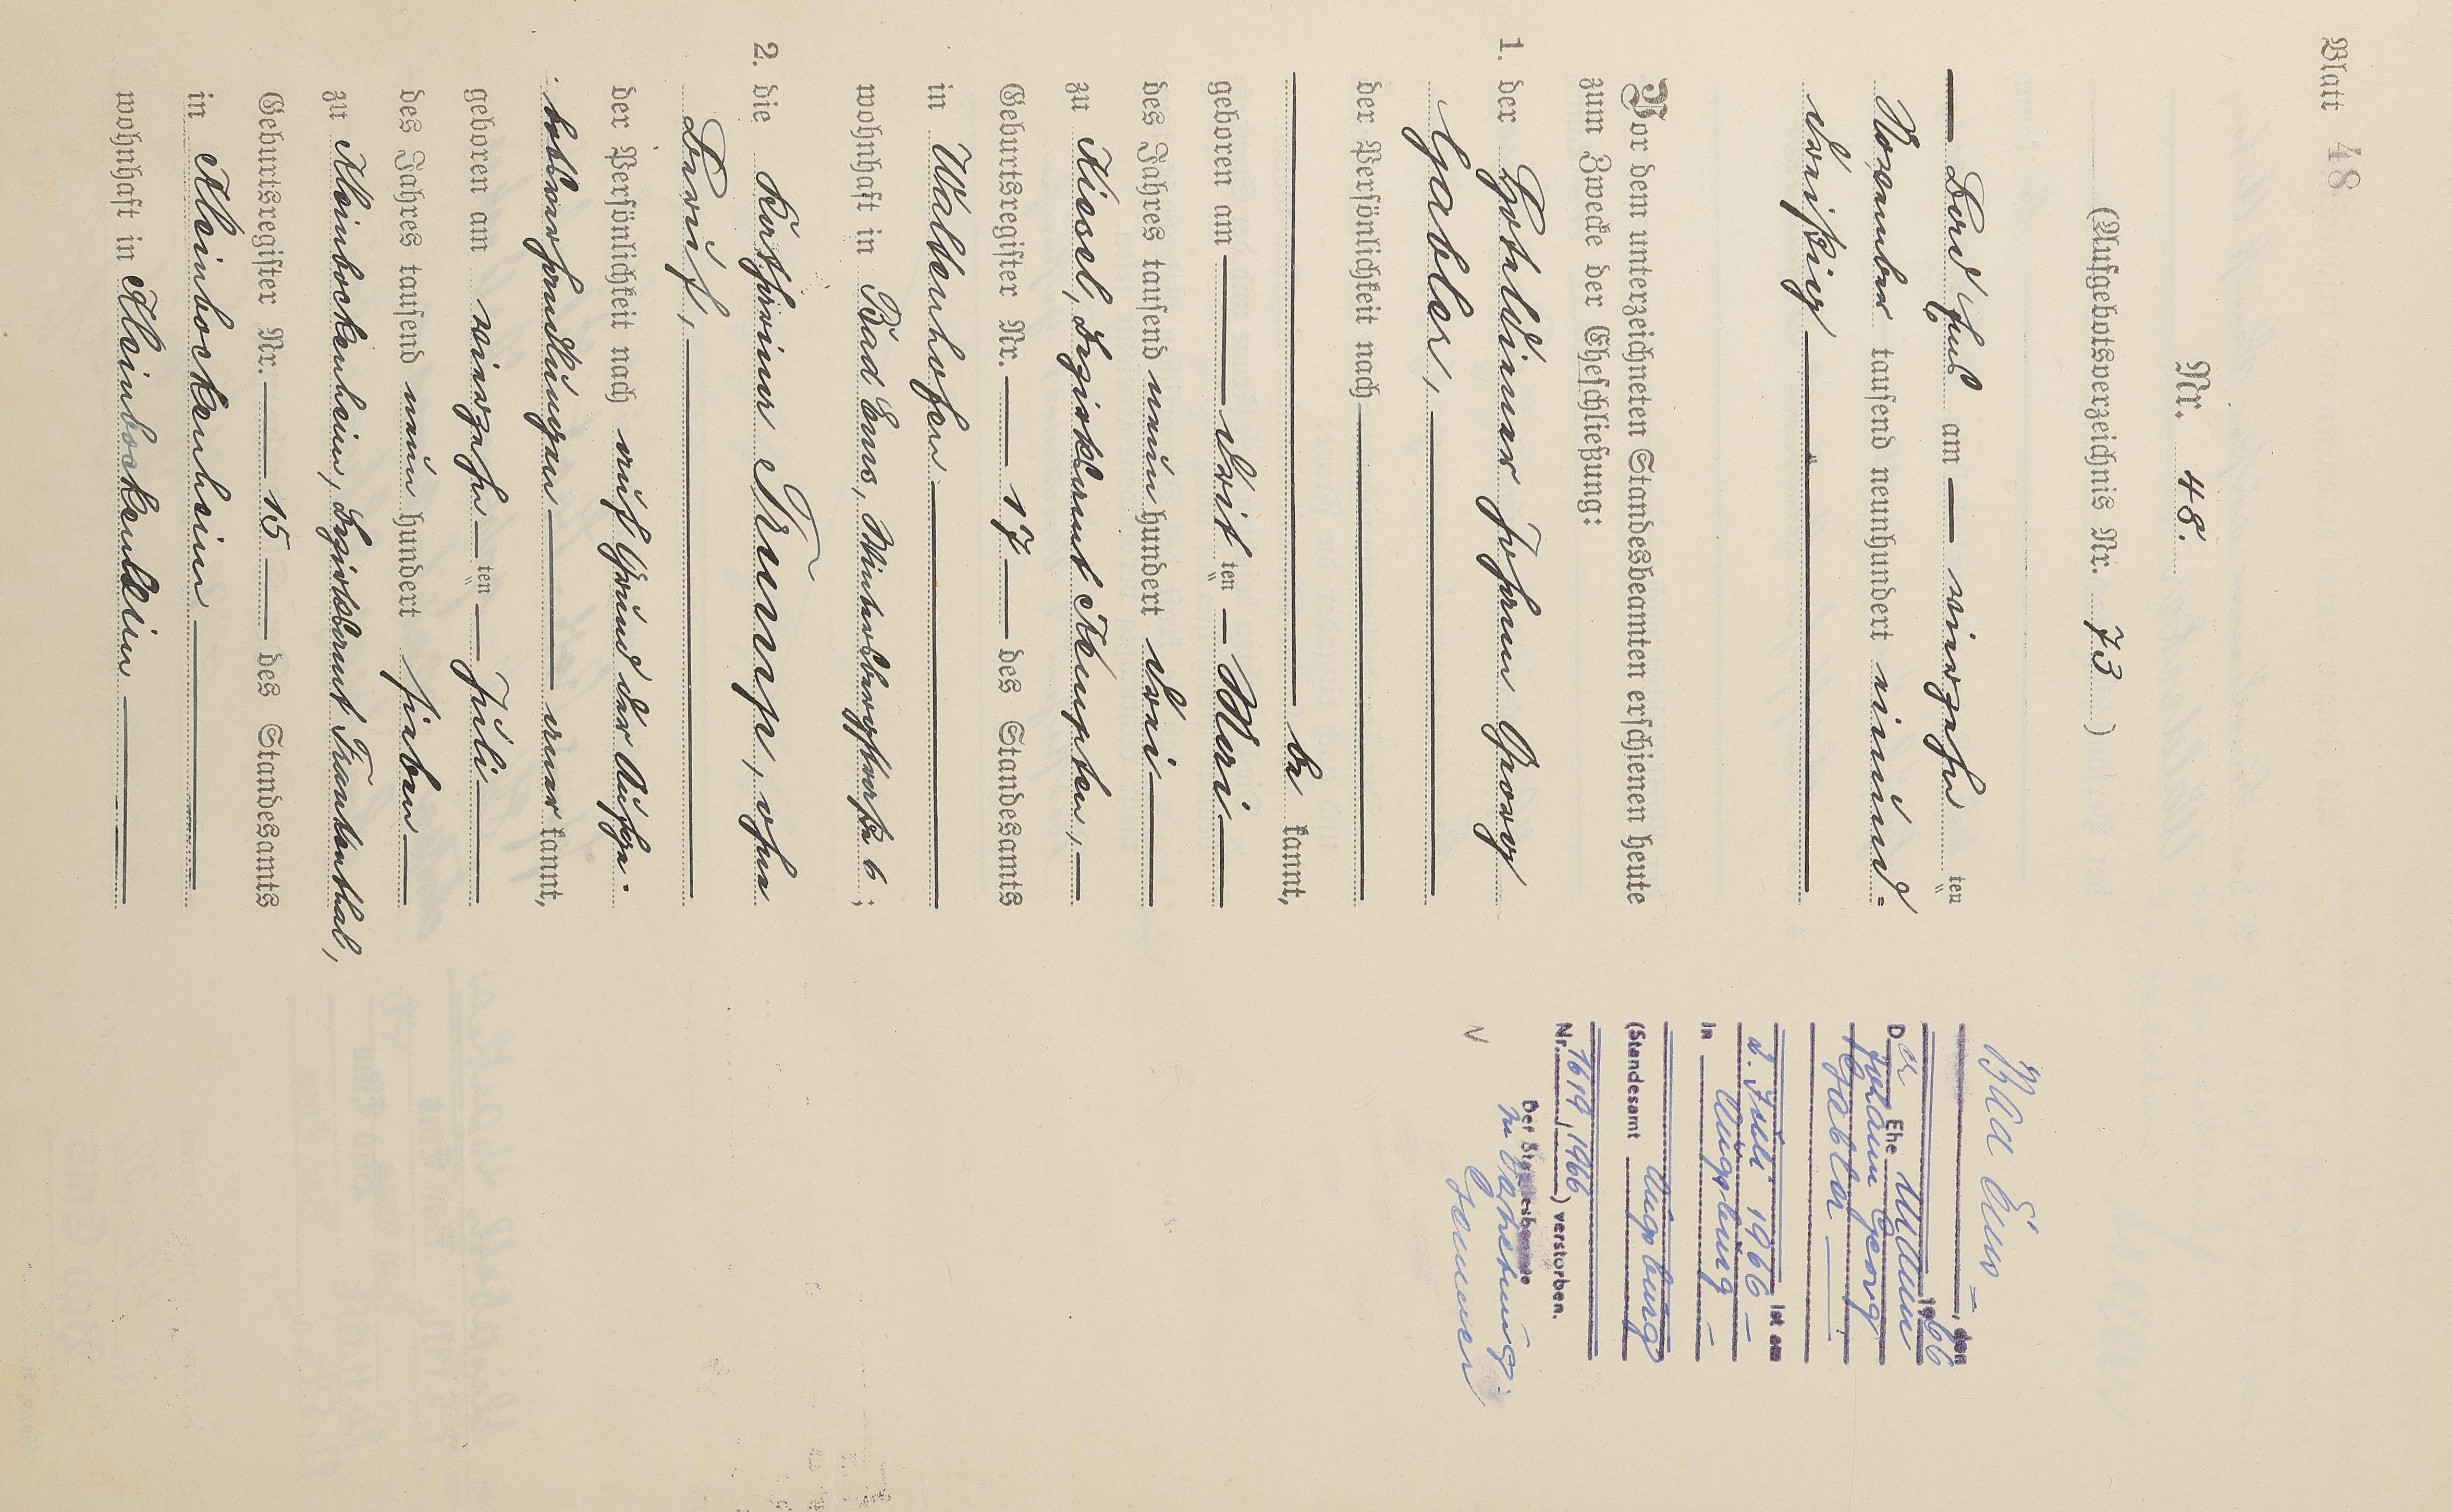 Blatt 48
Nr. 48.
(Aufgebotsverzeichnis Nr. 73)
Bad Ems am vierzehnten
November tausend neunhundert einund=
dreißig
Vor dem unterzeichneten Standesbeamten erschienen heute
zum Zwecke der Eheschließung:
1. der Johann Georg
Gabler,
der Persönlichkeit nach
be kannt,
geboren am dritten Mai
des Jahres tausend neun hundert drei
zu Kisel, Bezirksamt Kempten,
Geburtsregister Nr. 17 des Standesamts
in Waltenhofen
wohnhaft in Bad Ems, Wintersbergstraße 6;
2. die Katharina Trump, ohne
Beruf,
der Persönlichkeit nach auf Grund der Aufge-
botsverhandlungen aner kannt,
geboren am vierzehnten Juli
des Jahres tausend neun hundert sieben
zu Kleinbockenheim, Bezirksamt Frankenthal,
Geburtsregister Nr. 15 des Standesamts
in Kleinbockenheim
wohnhaft in Kleinbockenheim
Bad Ems, den
1966
Der Ehemann
Johann Georg
Gabler
ist am
2. Juli 1966
in Augsburg
(Standesamt Augsburg
Nr. 1619, 1966) verstorben.
Der Standesbeamte
In Vertretung: